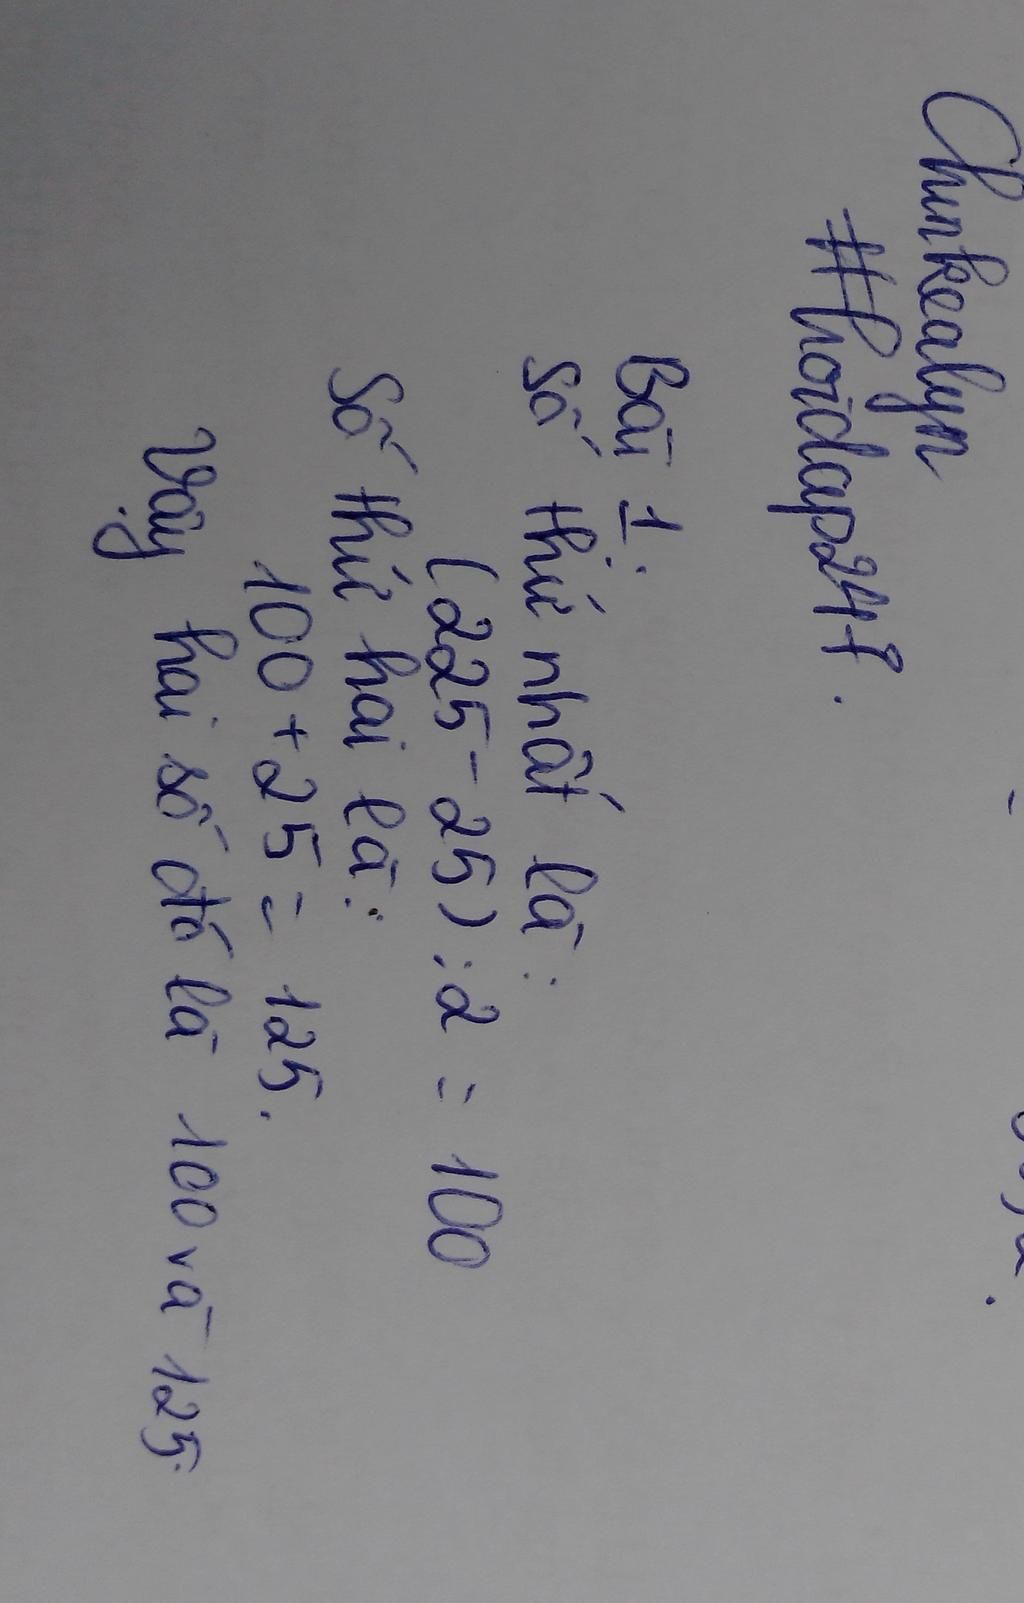 Chinkealyn
#hoidap247.
Bài 1:
Số thứ nhất là:
(225 - 25) : 2 = 100
Số thứ hai là:
100 + 25 = 125.
Vậy hai số đó là 100 và 125.